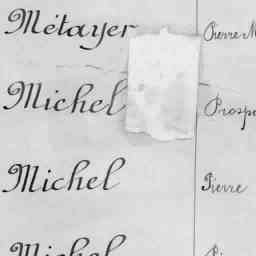 Métayer Pierre M
Michel Prospe
Michel Pierre
Michel Pi